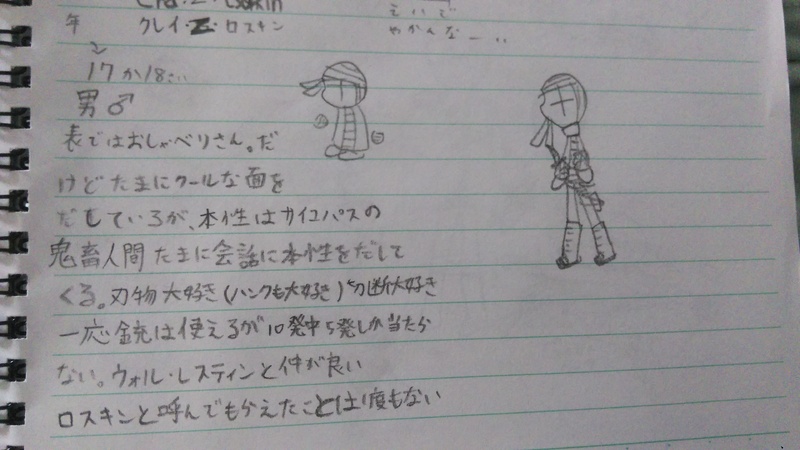 クレイ・Z・ロスキン
年
17か18さい
男♂
表ではおしゃべりさん。だ
けどたまにクールな面を
だしているが、本性はサイコパスの
鬼畜人間 たまに会話に本性をだして
くる。刃物大好き(ハンクも大好き)切断大好き
一応銃は使えるが10発中5発しか当たら
ない。ウォル・レスティンと仲が良い
ロスキンと呼んでもらえたことは1度もない